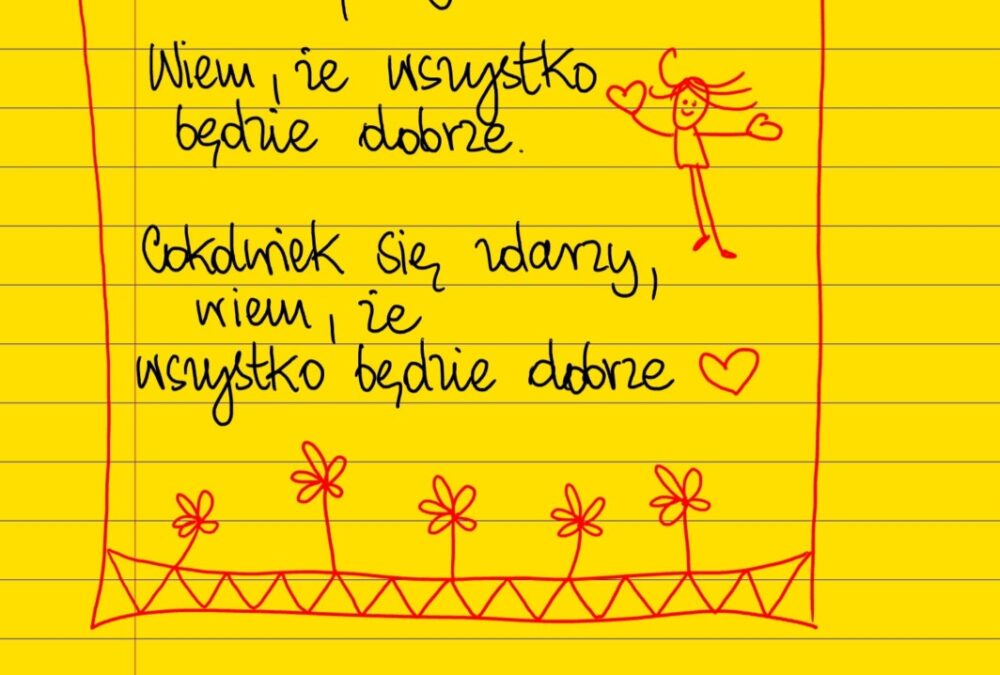 Wiem, że wszystko
będzie dobrze.
Cokolwiek się zdarzy,
wiem, że
wszystko będzie dobrze